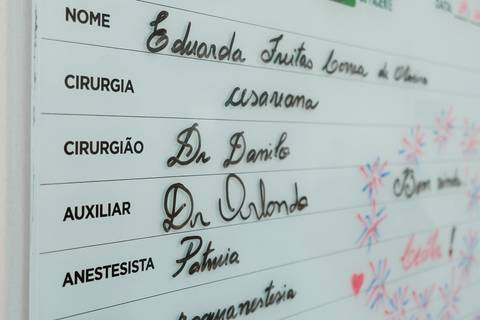 DATA
NOME Eduarda Freitas Correa de Oliveira
CIRURGIA cesariana
CIRURGIÃO Dr Danilo
AUXILIAR Dr Orlando
Bem vinda
ANESTESISTA Patricia
Cecília!